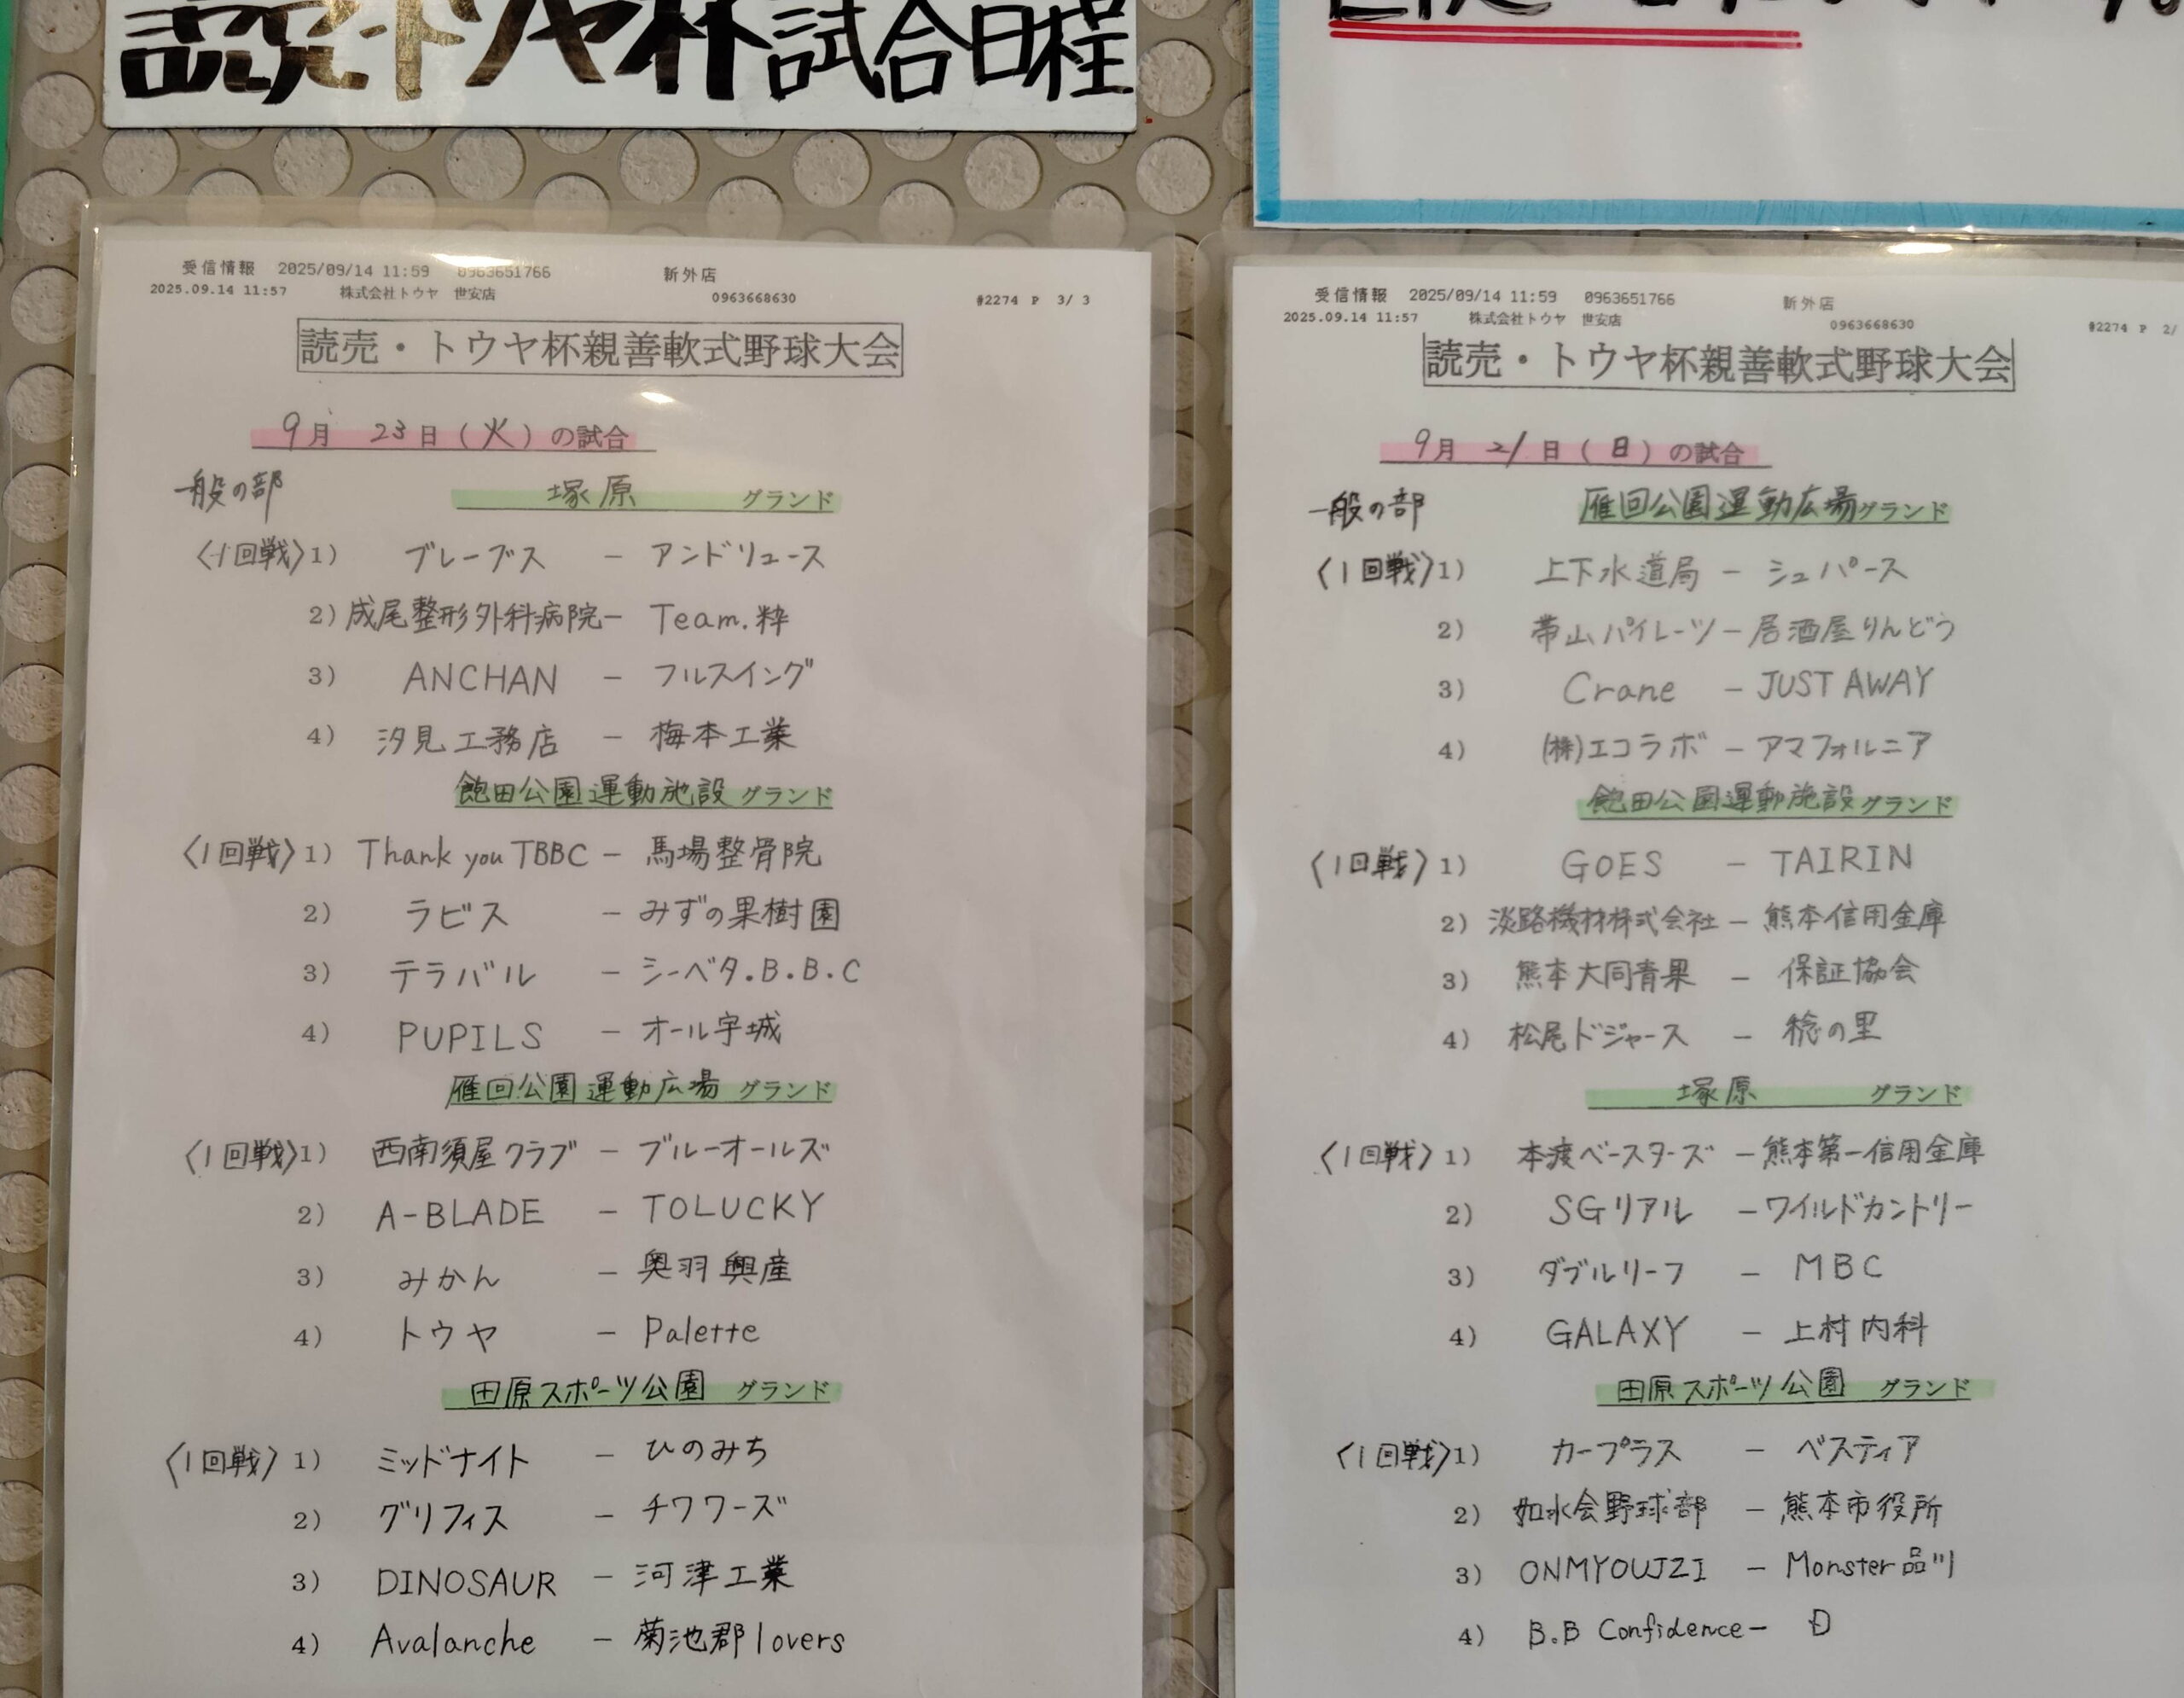 読売トウヤ杯試合日程
受信情報 2025/09/14 11:59 0963651766 新外店
2025.09.14 11:57 株式会社トウヤ 世安店 0963668630 #2274 P 3/ 3
読売・トウヤ杯親善軟式野球大会
9月 23日(火)の試合
一般の部 塚原 グランド
〈1回戦〉1) ブレーブス － アンドリュース
2) 成尾整形外科病院－ Team.粋
3) ANCHAN － フルスイング
4) 汐見工務店 － 梅本工業
飽田公園運動施設グランド
〈1回戦〉1) Thank you TBBC － 馬場整骨院
2) ラビス － みずの果樹園
3) テラバル － シーベタ.B.B.C
4) PUPILS － オール宇城
雁回公園運動広場 グランド
〈1回戦〉1) 西南須屋クラブ － ブルーオールズ
2) A-BLADE － TOLUCKY
3) みかん － 奥羽興産
4) トウヤ － Palette
田原スポーツ公園 グランド
〈1回戦〉1) ミッドナイト － ひのみち
2) グリフィス － チワワーズ
3) DINOSAUR － 河津工業
4) Avalanche － 菊池郡lovers
受信情報 2025/09/14 11:59 0963651766 新外店
2025.09.14 11:57 株式会社トウヤ 世安店 0963668630 #2274 P 2/
読売・トウヤ杯親善軟式野球大会
9月 21日(日)の試合
一般の部 雁回公園運動広場グランド
〈1回戦〉1) 上下水道局 － シュパース
2) 帯山パイレーツ－居酒屋りんどう
3) Crane － JUST AWAY
4) (株)エコラボ－アマフォルニア
飽田公園運動施設グランド
〈1回戦〉1) GOES － TAIRIN
2) 淡路機材株式会社－熊本信用金庫
3) 熊本大同青果 － 保証協会
4) 松尾ドジャース － 稔の里
塚原 グランド
〈1回戦〉1) 本渡ベースターズ－熊本第一信用金庫
2) SGリアル －ワイルドカントリー
3) ダブルリーフ － MBC
4) GALAXY － 上村内科
田原スポーツ公園 グランド
〈1回戦〉1) カープラス － ベスティア
2) 如水会野球部 － 熊本市役所
3) ONMYOUJZI － Monster品川
4) B.B Confidence－ Ð